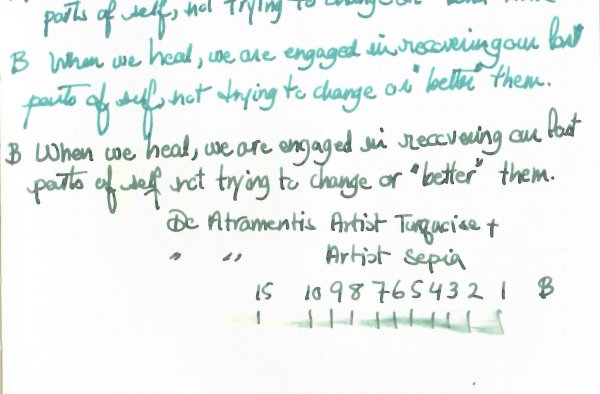 parts of self, not trying to change or
B When we heal, we are engaged in recovering our lost
parts of self, not trying to change or "better" them.
B When we heal, we are engaged in recovering our lost
parts of self not trying to change or "better" them.
De Atramentis Artist Turquoise +
" " Artist Sepia
15 10 9 8 7 6 5 4 3 2 1 B